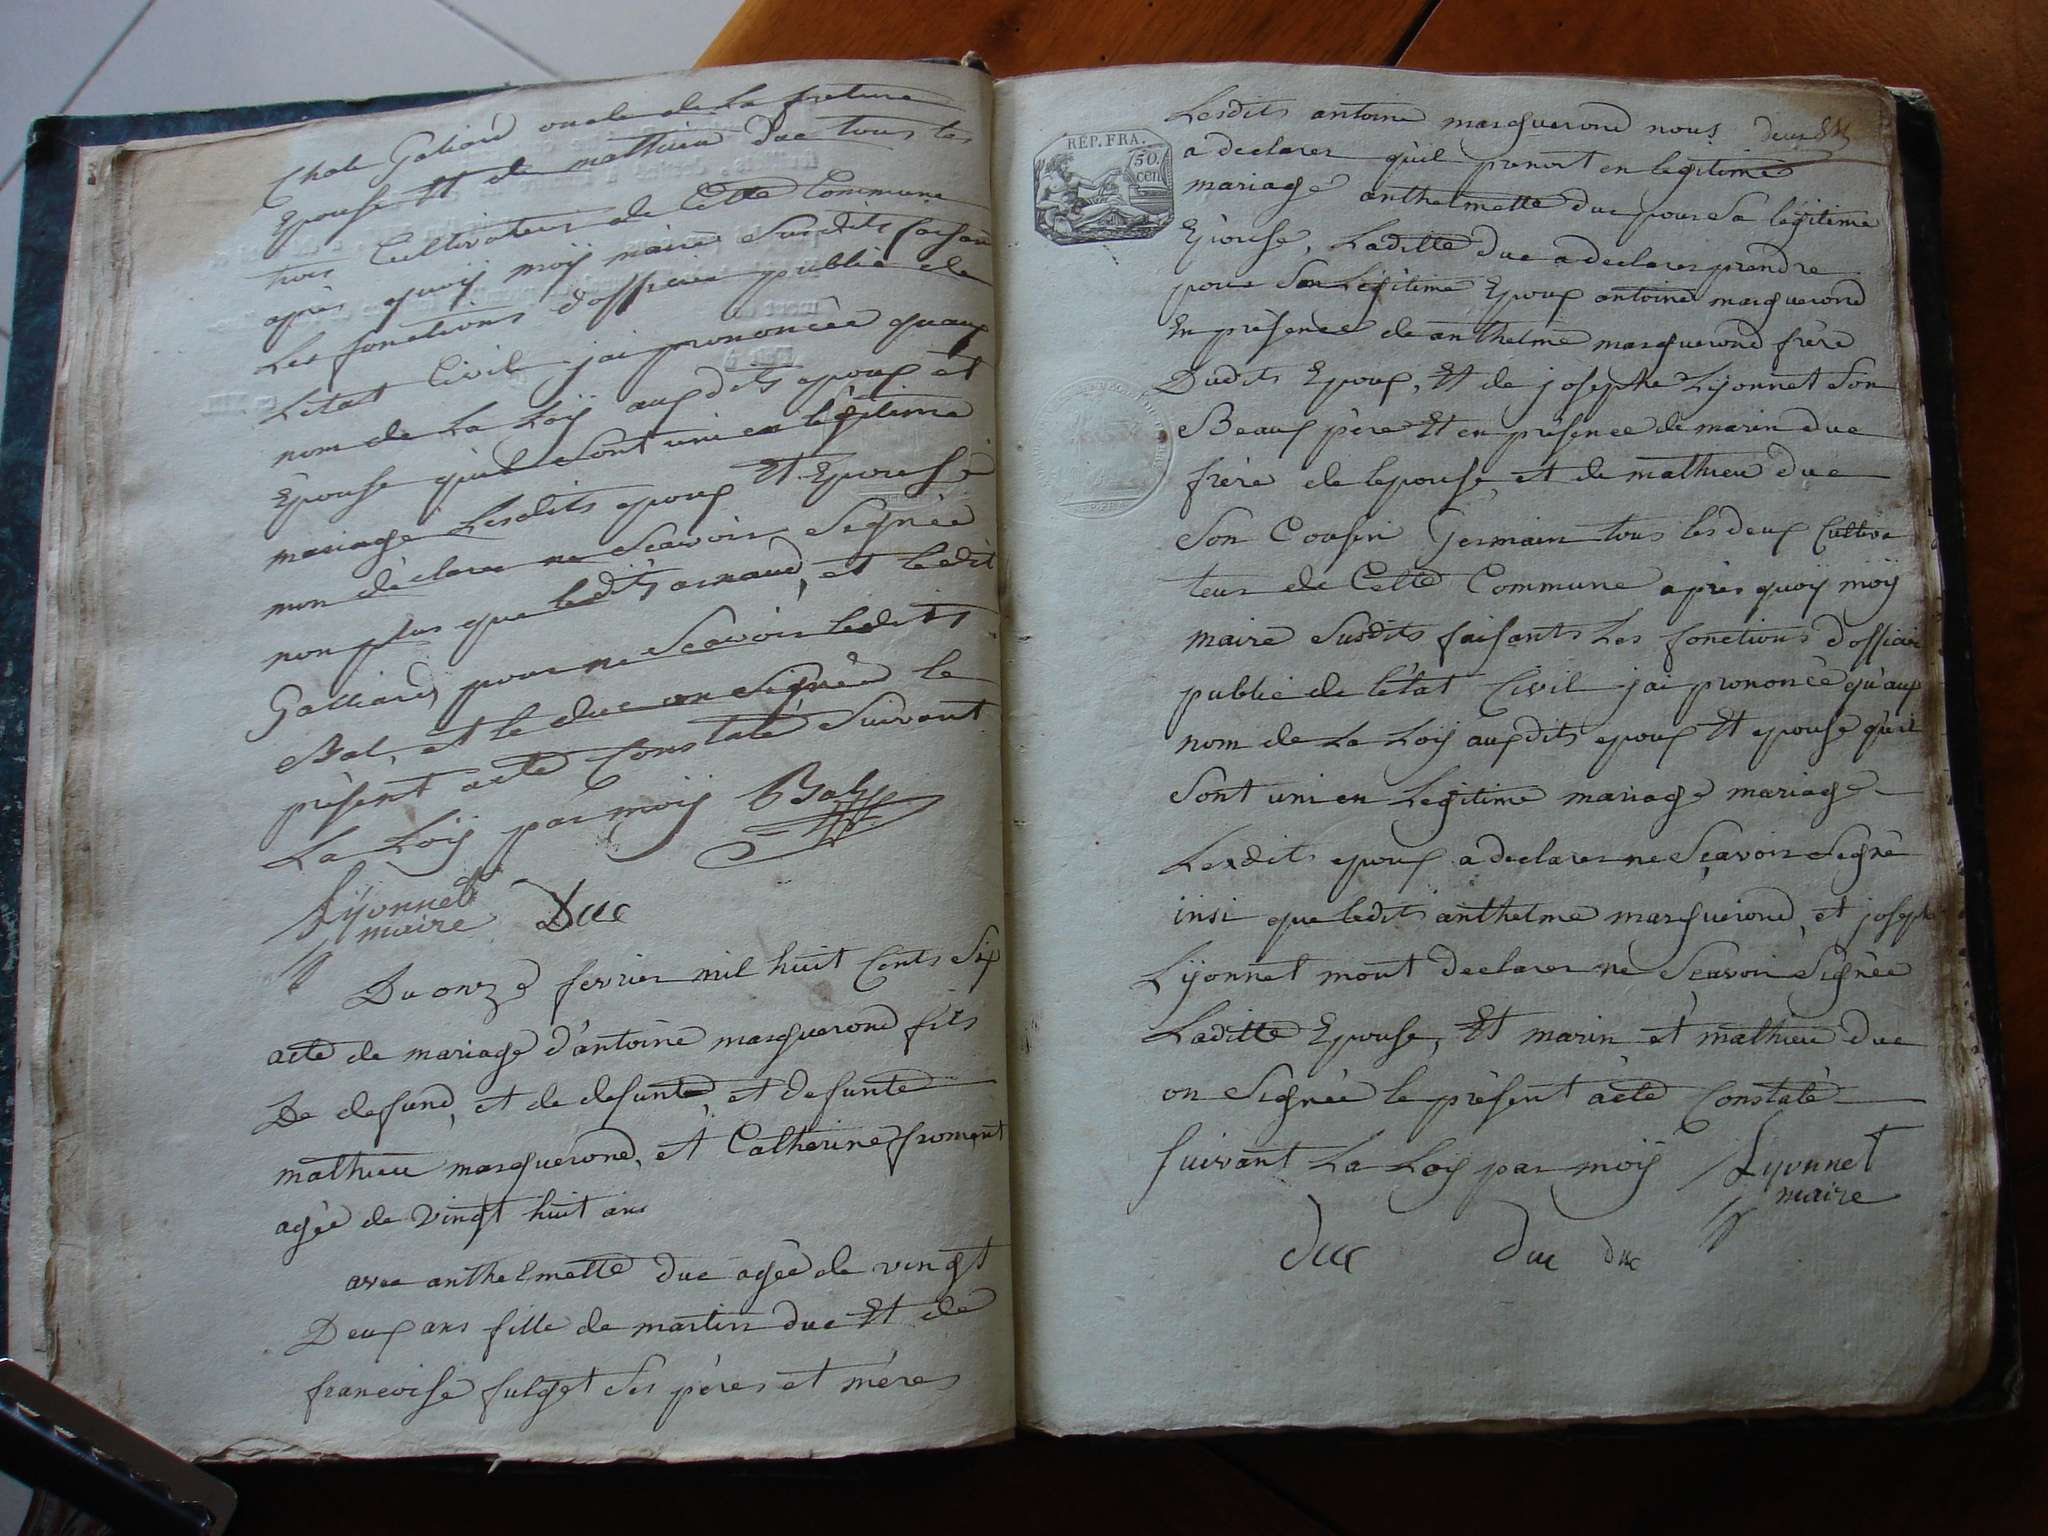 Chate Galiard oncle de La freture
Epouse Et de mathieu Duc tous les
trois Cultivateurs de Cette Commune
après quoiy moiy maire Susdits faisant
Les fonctions d'officier public de
L'état Civil j'ai prononcée quaux
nom de La Loiÿ auxdits epoux et
Epouse quils sont uni en légitime
mariage Lesdits epoux Et Epouse
mon déclarer ne Scavoir Signée
non plus que ledits arnaud, et ledit
Galliard, pour ne Scavoir ledits
Bal, et le duc on Signée le
présent acte Constaté Suivant
La Loiÿ par moiÿ Bal
Lyonnet
maire Duc
Du onze fevrier mil huit Cents Six
acte de mariage d'antoine marguerond fils
De defund, et de defunte, et defunte
mathieu marguerond, et Catherine froment
agée de vingt huit ans
avec anthelmette duc agée de vingt
Deux ans fille de martin duc Et de
francoise fulget Ses pères et mères
Lesdits antoine marguerond nous deux
REP. FRA.
50.
cen
a declarer qu'il prenoit en legitime
mariage anthelmette duc pour Sa légitime
Epouse, Laditte duc a declarer prendre
pour Son Légitime Epoux antoine marguerond
En présence de anthelme marguerond frère
Dudits Epoux, Et de josephe Lyonnet Son
Beaux père Et en présence de marin duc
frère de lepouse, et de mathieu duc
Son Cousin Germain tous les deux Cultiva
teur de Cette Commune après quoiy moiÿ
maire Susdits faisants Les fonctions d'officier
public de l'état Civil j'ai prononcée qu'aux
nom de La Loiy auxdits epoux Et epouse quil
Sont uni en Legitime mariage mariage
Lesdits epoux a declarer ne Sçavoir Segné
insi que ledits anthelme marguerond, et joseph
Lyonnet mont declarer ne Scavoir Signée
Laditte Epouse, Et marin et mathieu duc
on Signée le présent acte Constaté
Suivant La Loiy par moiy Lyonnet
maire
Duc Duc Duc